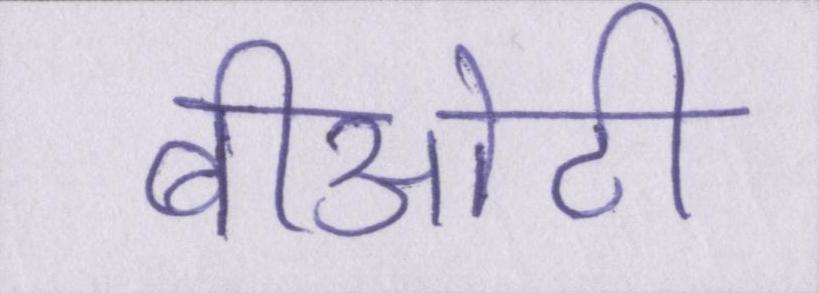 बीओटी